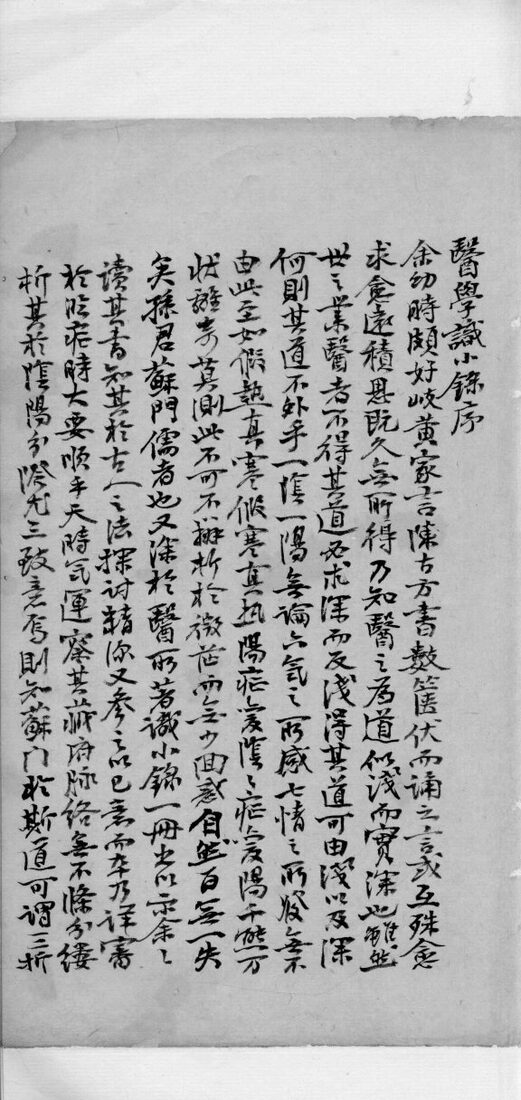 醫學識小錄序
余幼時頗好岐黃家言陳古方書數篋伏而誦之言或互殊愈
求愈遠積思既久無所得乃知醫之為道似淺而實深也雖然
世之業醫者不得其道必求深而反淺得其道可由淺以及深
何則其道不外乎一陰一陽無論六氣之所感七情之所發無不
由此至如假熱真寒假寒真热陽症變陰々症變陽千態万
狀離奇莫測此不可不辨析於微茫而無少回惑自然百無一失
矣孫君蘇門儒者也又深於醫所著識小錄一冊出以示余々
讀其書知其於古人之法探討精深又參之以己意而卒乃詳審
於臨症時大要順乎天時氣運察其藏府脉絡無不條分縷
析其於陰陽分際尤三致意焉則知蘇门於斯道可謂三折